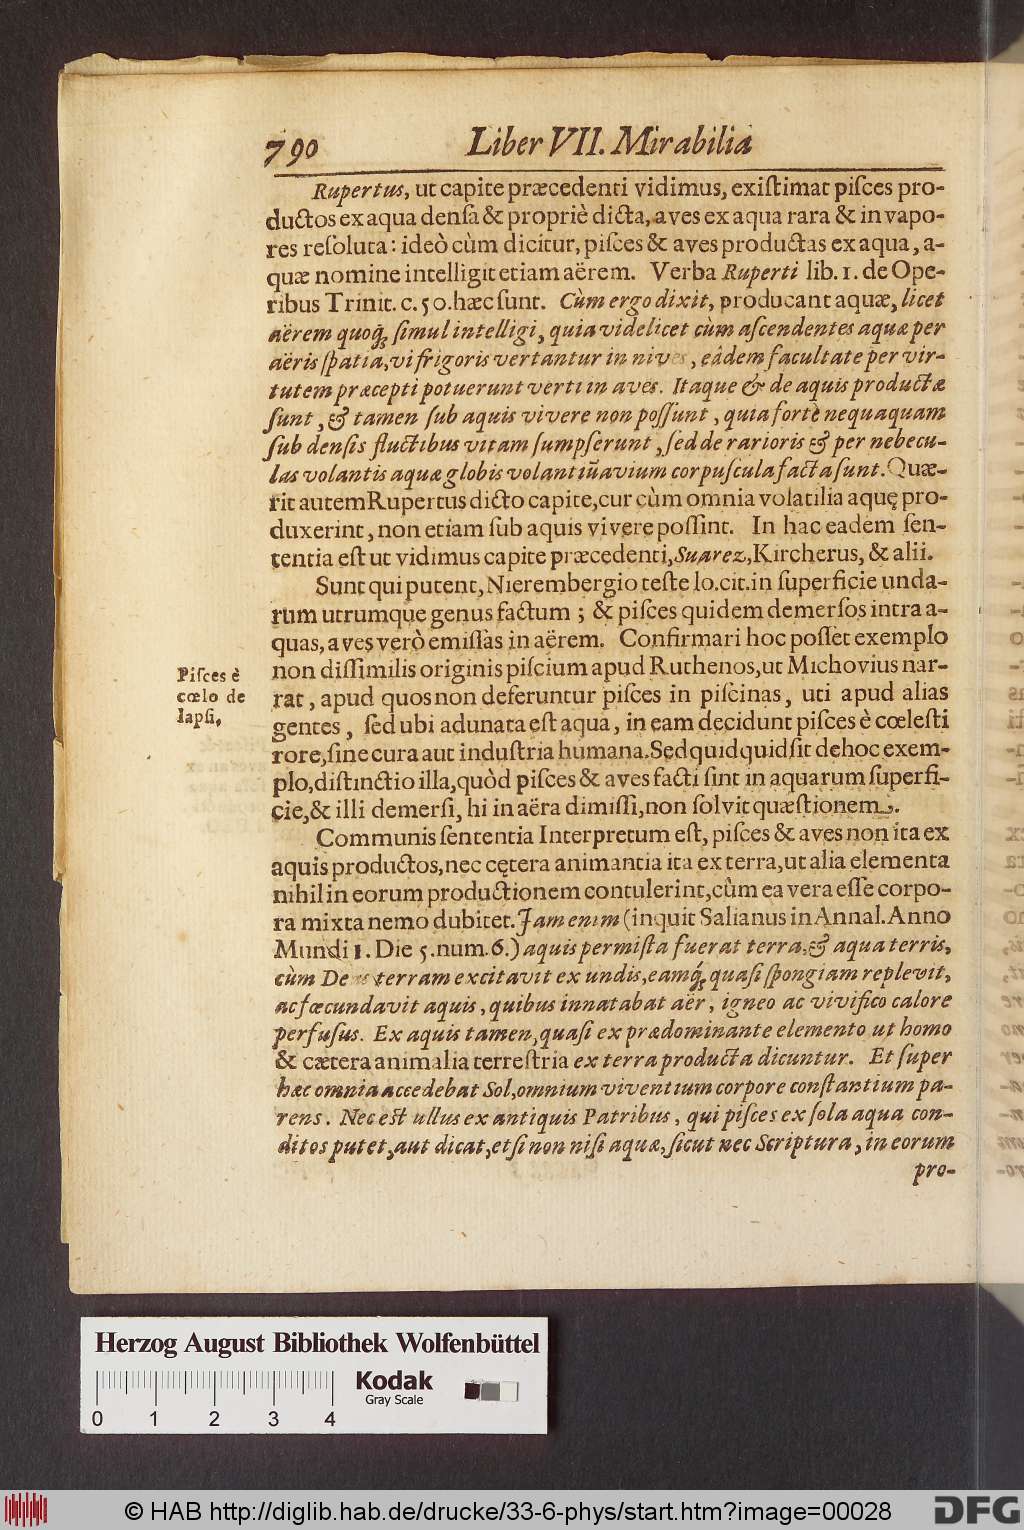 790 Liber VII. Mirabilia
Rupertus, ut capite præcedenti vidimus, existimat pisces pro-
ductos ex aqua densa & propriè dicta, aves ex aqua rara & in vapo-
res resoluta: ideò cùm dicitur, pisces & aves productas ex aqua, a-
quæ nomine intelligit etiam aërem. Verba Ruperti lib. 1. de Ope-
ribus Trinit. c. 50. hæc sunt. Cùm ergo dixit, producant aquæ, licet
aërem quoq; simul intelligi, quia videlicet cùm ascendentes aquæ per
aëris spatia, vi frigoris vertantur in nives, eâdem facultate per vir-
tutem præcepti potuerunt verti in aves. Itaque & de aquis productæ
sunt, & tamen sub aquis vivere non possunt, quia fortè nequaquam
sub densis fluctibus vitam sumpserunt, sed de rarioris & per nebecu-
las volantis aquæ globis volantiũ avium corpuscula facta sunt. Quæ-
rit autem Rupertus dicto capite, cur cùm omnia volatilia aquę pro-
duxerint, non etiam sub aquis vivere possint. In hac eadem sen-
tentia est ut vidimus capite præcedenti, Suarez, Kircherus, & alii.
Sunt qui putent, Nierembergio teste lo. cit. in superficie unda-
rum utrumque genus factum ; & pisces quidem demersos intra a-
quas, aves verò emissas in aërem. Confirmari hoc posset exemplo
non dissimilis originis piscium apud Ruthenos, ut Michovius nar-
rat, apud quos non deferuntur pisces in piscinas, uti apud alias
gentes, sed ubi adunata est aqua, in eam decidunt pisces è cœlesti
rore, sine cura aut industria humana. Sed quidquid sit de hoc exem-
plo, distinctio illa, quòd pisces & aves facti sint in aquarum superfi-
cie, & illi demersi, hi in aëra dimissi, non solvit quæstionem.
Pisces è
cœlo de
lapsi,
Communis sententia Interpretum est, pisces & aves non ita ex
aquis productos, nec cętera animantia ita ex terra, ut alia elementa
nihil in eorum productionem contulerint, cùm ea vera esse corpo-
ra mixta nemo dubitet. Jam enim (inquit Salianus in Annal. Anno
Mundi 1. Die 5. num. 6.) aquis permista fuerat terra, & aqua terris,
cùm Deus terram excitavit ex undis, eamq; quasi spongiam replevit,
ac fœcundavit aquis, quibus innatabat aër, igneo ac vivifico calore
perfusus. Ex aquis tamen, quasi ex prædominante elemento ut homo
& cætera animalia terrestria ex terra producta dicuntur. Et super
hæc omnia accedebat Sol, omnium viventium corpore constantium pa-
rens. Nec est ullus ex antiquis Patribus, qui pisces ex sola aqua con-
ditos putet, aut dicat, etsi non nisi aquæ, sicut nec Scriptura, in eorum
pro-
Herzog August Bibliothek Wolfenbüttel
Kodak
Gray Scale
0 1 2 3 4
© HAB http://diglib.hab.de/drucke/33-6-phys/start.htm?image=00028
DFG